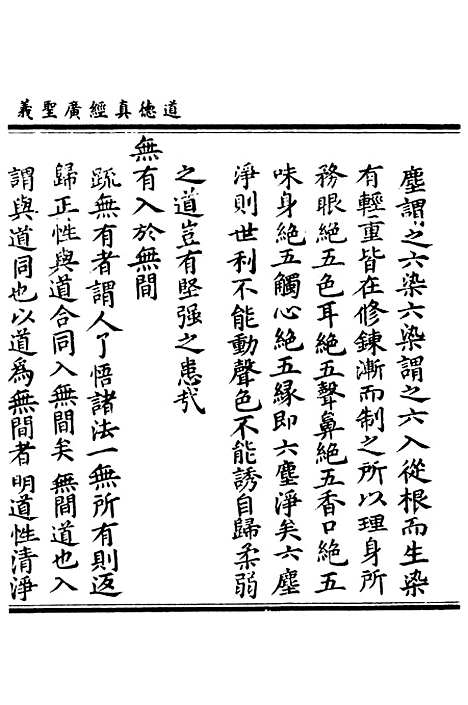 道德真經廣聖義
塵謂之六染六染謂之六入從根而生染
有輕重皆在修鍊漸而制之所以理身所
務眼絕五色耳絕五聲鼻絕五香口絕五
味身絕五觸心絕五緣即六塵淨矣六塵
淨則世利不能動聲色不能誘自歸柔弱
之道豈有堅强之患㢤
無有入於無間
䟽無有者謂人了悟諸法一無所有則返
歸正性與道合同入無間矣無間道也入
謂與道同也以道爲無間者明道性清淨